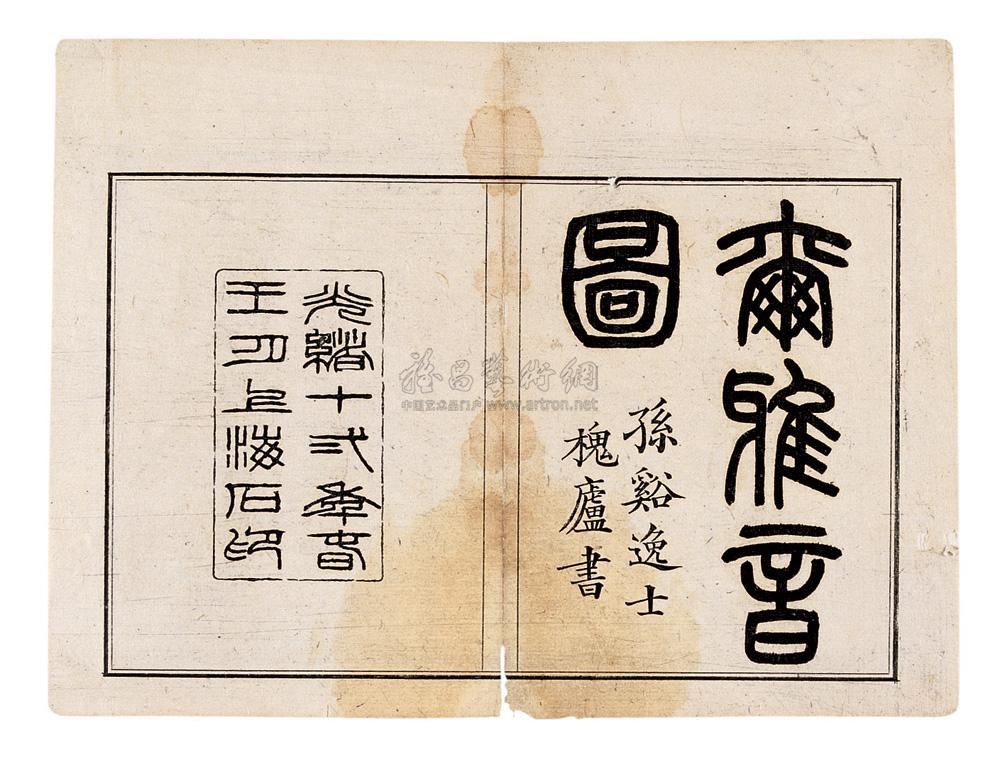 爾雅音
圖
孫谿逸士
槐廬書
光緒十弍年春
王月上海石印
雅昌藝術網
中国艺术品门户 www.artron.net